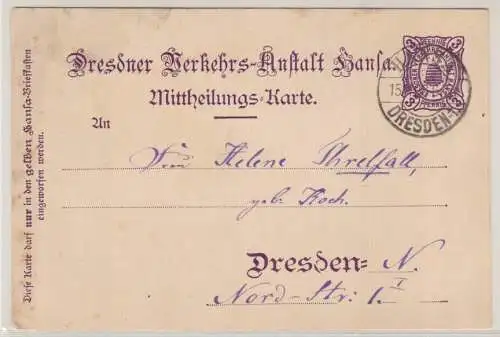 Dresdner Verkehrs-Anstalt Hansa.
Mittheilungs-Karte.
An
Frau Helene Threlfall,
geb. Koch.
Dresden- N.
Nord-Str: 1. I
Diese Karte darf nur in den gelben Hansa-Briefkasten
eingeworfen werden.
3
3
3
3
15
DRESDEN